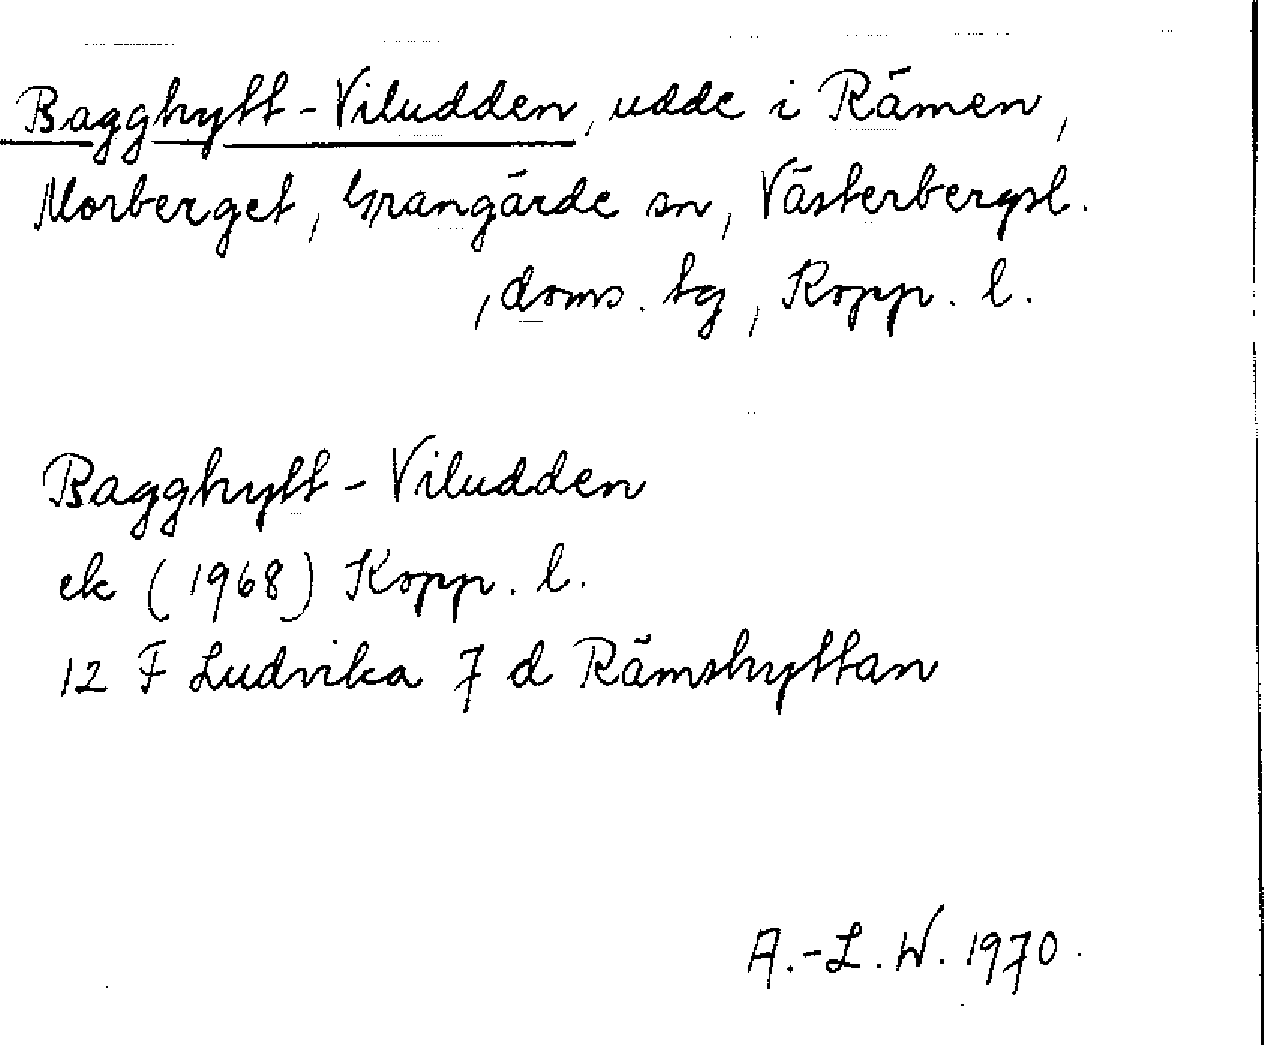 Bagghytt-Viludden, udde i Rämen,
Norberget, Grangärde sn, Västerbergsl.
, doms. tg, Kopp. l.
Bagghytt-Viludden
ek (1968) Kopp. l.
12 F Ludvika 7 d Rämshyttan
A.-L. W. 1970.